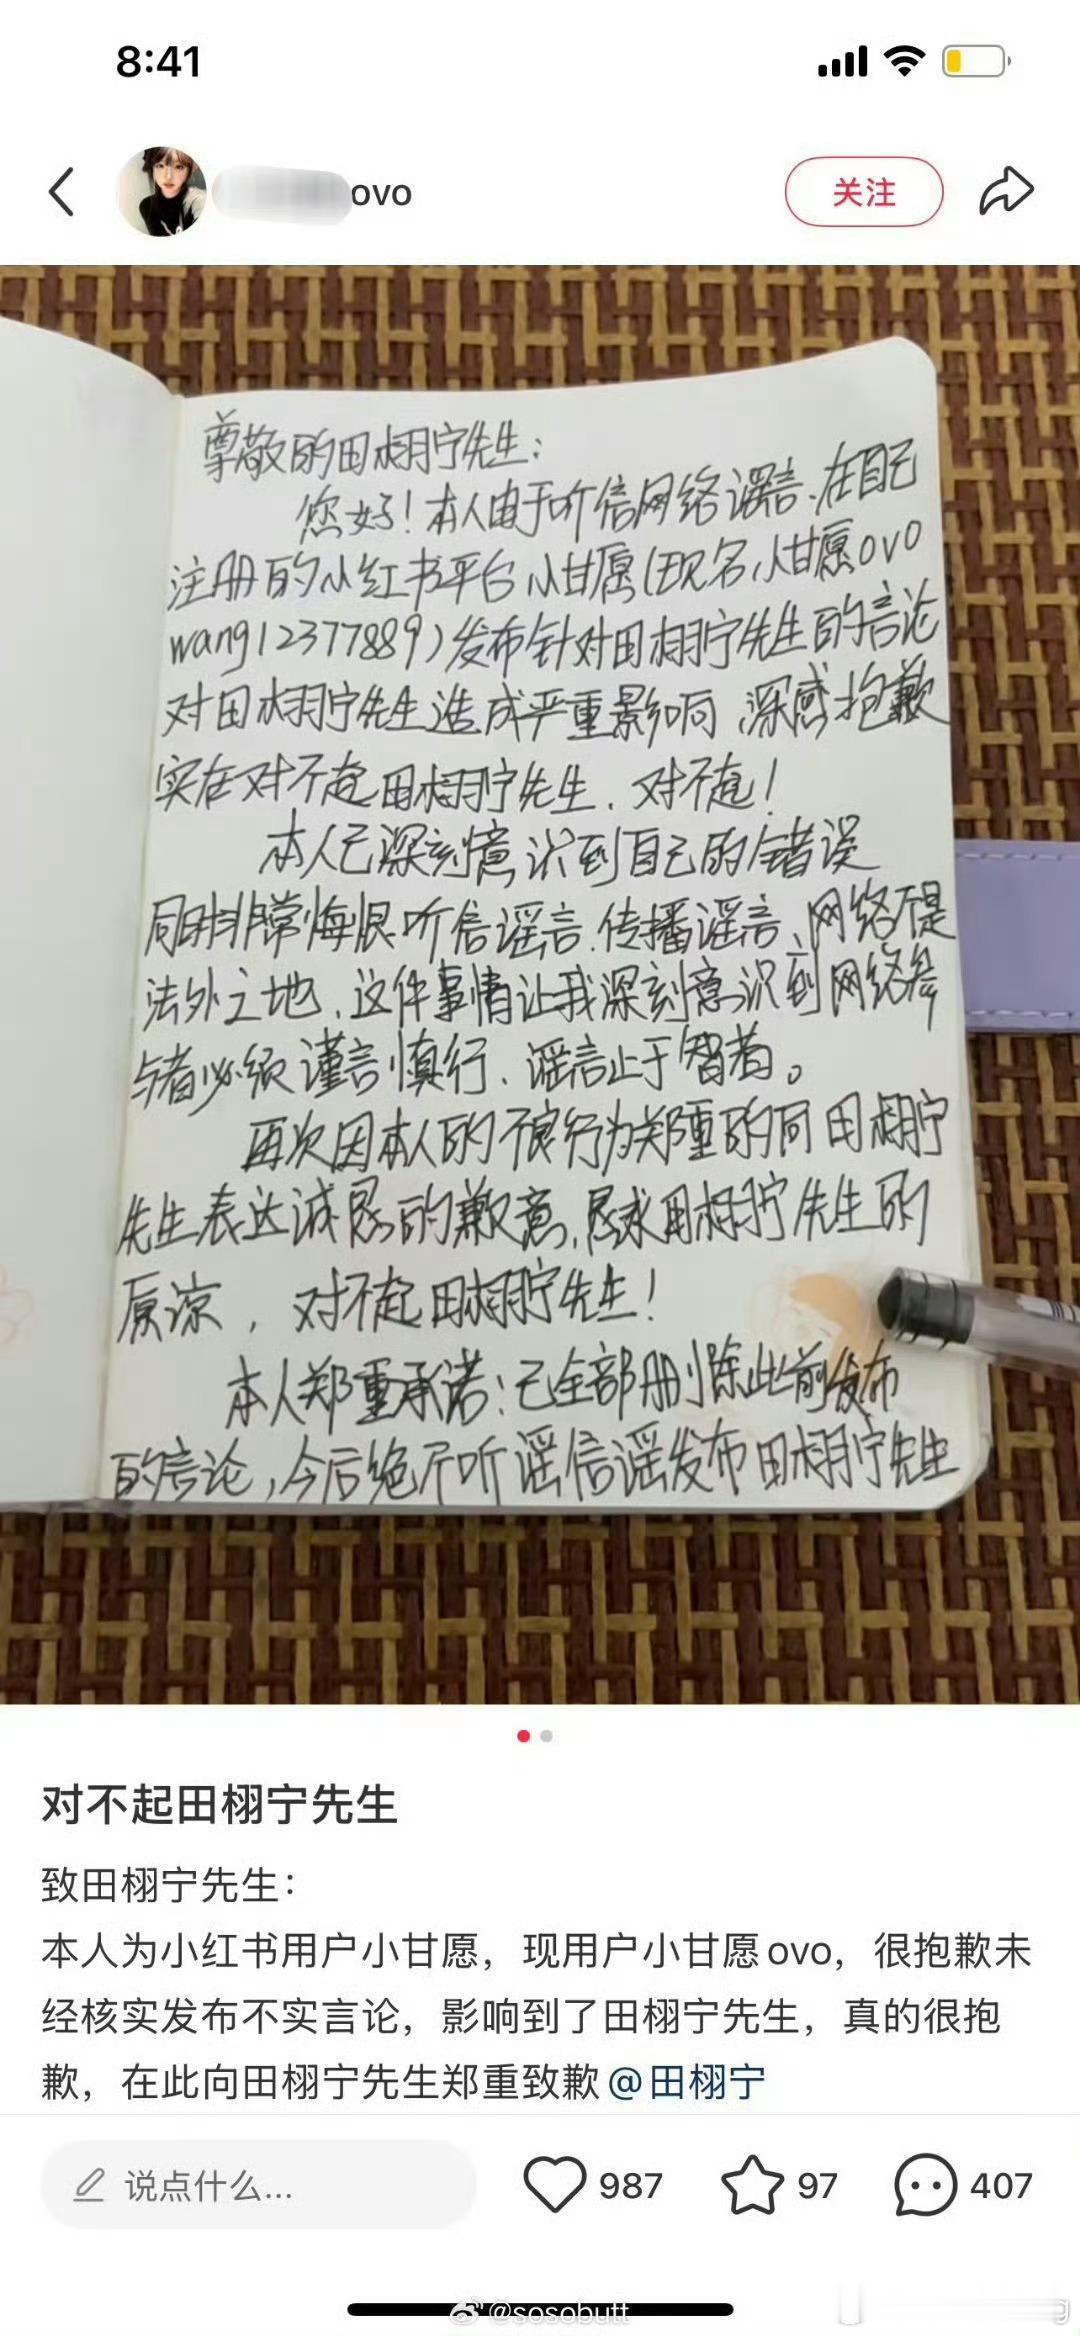 8:41
ovo
关注
尊敬的田栩宁先生：
您好！本人由于听信网络谣言、在自己
注册的小红书平台小甘愿(现名小甘愿ovo
wang12377889)发布针对田栩宁先生的言论
对田栩宁先生造成严重影响、深感抱歉
实在对不起田栩宁先生、对不起！
本人已深刻意识到自己的错误
同时非常悔恨听信谣言、传播谣言、网络不是
法外之地、这件事情让我深刻意识到网络参
与者必须谨言慎行、谣言止于智者。
再次因本人的不良行为郑重的向田栩宁
先生表达诚恳的歉意、恳求田栩宁先生的
原谅，对不起田栩宁先生！
本人郑重承诺：已全部删除此前发布
的言论，今后绝不听谣信谣发布田栩宁先生
对不起田栩宁先生
致田栩宁先生：
本人为小红书用户小甘愿，现用户小甘愿ovo，很抱歉未
经核实发布不实言论，影响到了田栩宁先生，真的很抱
歉，在此向田栩宁先生郑重致歉@田栩宁
说点什么...
987
97
407
@sosobutt